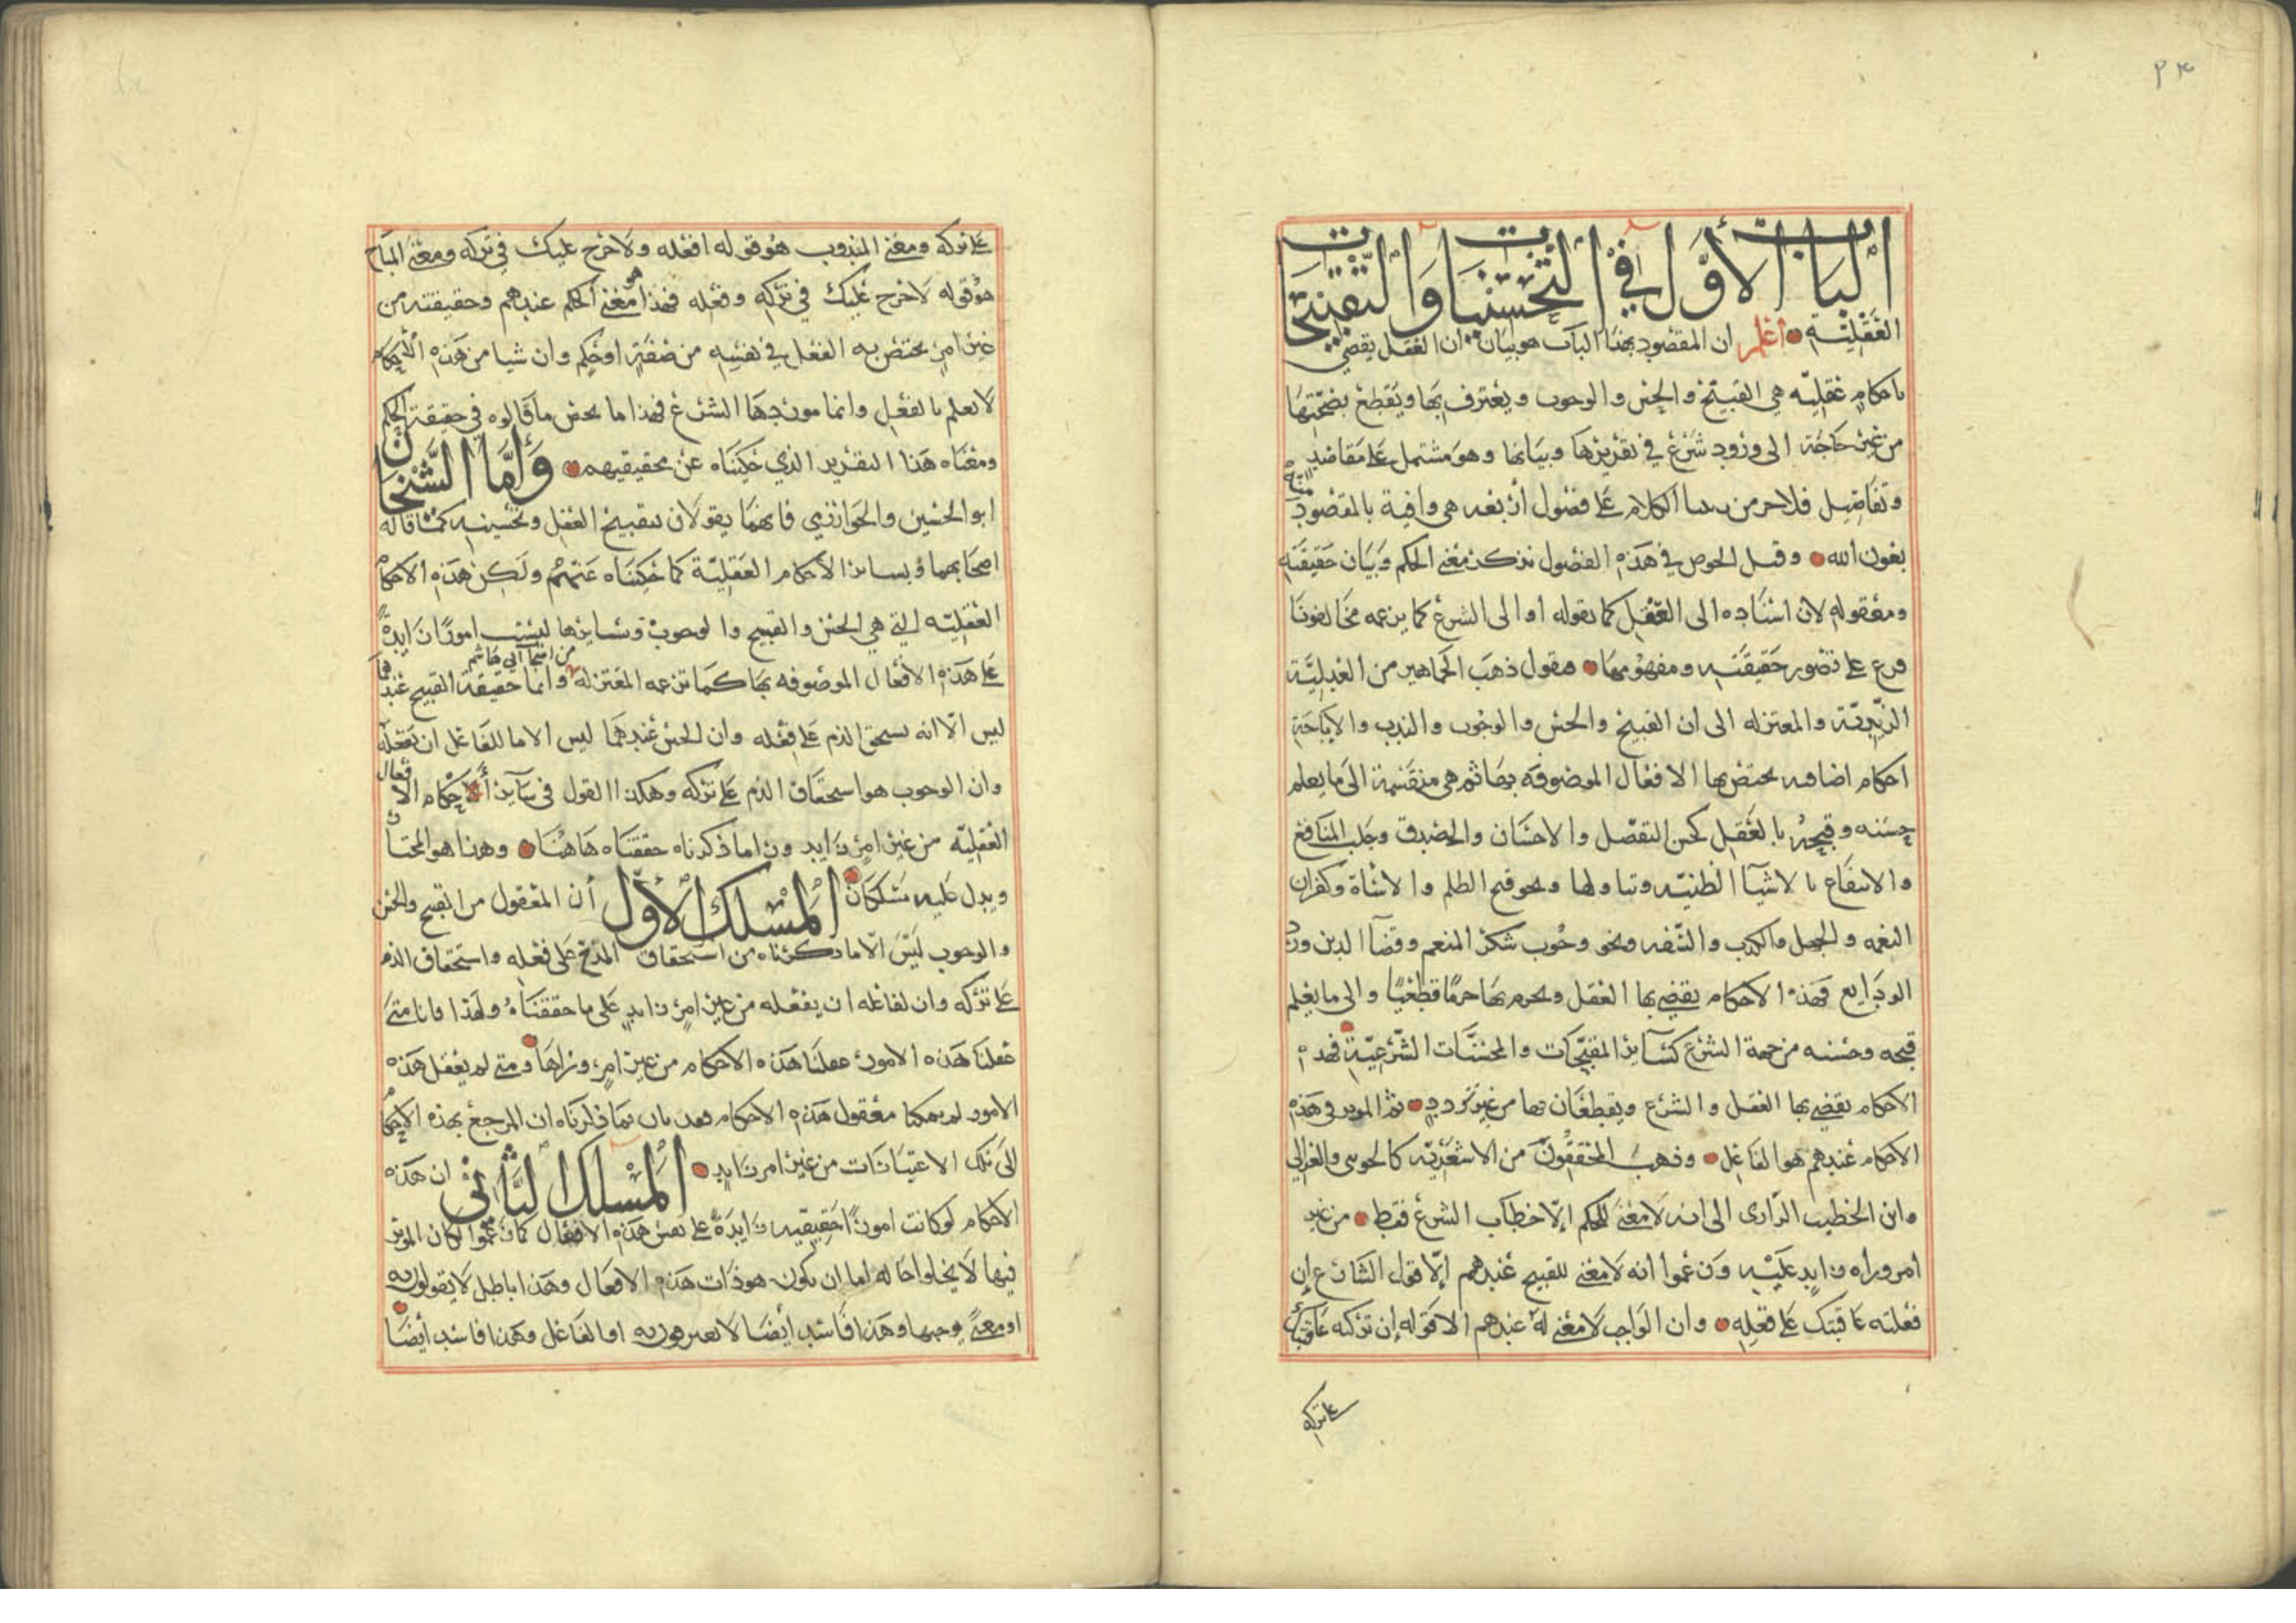 ٣٤
الباب الأول في التحسينات والتقبيحات
العقلية اعلم ان المقصود بهذا الباب هو بيان ان العقل يقضي
باحكام عقليه هي القبيح والحسن والوجوب ويعترف بها ويقطع بصحتها
من غير حاجة الى ورود شرع في تقريرها وبيانها وهو مشتمل على مقاصد
وتفاصيل فلا جرم الكلام على فصول أربعه هي وافية بالمقصود
بعون الله وقبل الخوض في هذه الفصول نذكر معنى الحكم وبيان حقيقته
ومعقوله لان اسناده الى العقل كما نقوله أو الى الشرع كما يزعمه مخالفونا
فرع على تصور حقيقته ومفهومها فنقول ذهب الجماهير من العدلية
الزيدية والمعتزله الى ان القبيح والحسن والوجوب والندب والاباحة
احكام اضافيه يختص بها الافعال الموصوفه بها ثم هي منقسمة الى ما يعلم
حسنه وقبحه بالعقل كحسن التفضل والاحسان والصدق وجلب المنافع
والانتفاع بالاشيآ الطيبه وتناولها ونحو قبح الظلم والاساة وكفران
النعمه والجهل والكذب والسفه ونحو وجوب شكر المنعم وقضآ الدين ورد
الودايع فهذه الاحكام يقضي بها العقل ويجزم بها جزما قطعيا والى ما يعلم
قبحه وحسنه من جهة الشرع كسآئر المقبحات والمحسنات الشرعية فهذه
الاحكام يقضي بها العقل والشرع ويقطعان بها من غير تردد ثم الموثر في هذه
الاحكام عندهم هو الفاعل وذهب المحققون من الاشعرية كالجويني والغزالي
وابن الخطيب الرازى الى انه لا معنى للحكم إلا خطاب الشرع فقط من غير
امر وراه زايد عليه وزعموا انه لا معنى للقبيح عندهم إلا قول الشارع إن
فعلته عاقبتك على فعله وان الواجب لا معنى له عندهم الا قوله إن تركته عاقبتك
على تركه
على تركه ومعنى المندوب هو قوله افعله ولا حرج عليك في تركه ومعنى المباح
هو قوله لا حرج عليك في تركه وفعله فهذا هو معنى الحكم عندهم وحقيقته من
غير امر يختص به الفعل في نفسه من صفة او حكم وان شيا من هذه الاحكام
لا يعلم بالعقل وانما موردها الشرع فهذا ما محض ما قالوه في حقيقة الحكم
ومعناه هذا التقرير الذي حكيناه عن محققيهم وأما الشيخان
ابو الحسين والخوارزمي فانهما يقولان بتقبيح العقل وتحسينه كما قاله
اصحابهما وبسائر الأحكام العقلية كما حكيناه عنهم ولكن هذه الاحكام
العقليه التي هي الحسن والقبح والوجوب وسايرها ليست امورا زايدة
على هذه الافعال الموصوفه بها كما تزعمه المعتزله من اصحاب أبي هاشم وانما حقيقة القبيح عندهما
ليس الا انه يستحق الذم على فعله وان الحسن عندهما ليس الا ما للفاعل ان يفعله
وان الوجوب هو استحقاق الذم على تركه وهكذا القول في سآير أحكام الافعال
العقليه من غير امر زايد ورا ما ذكرناه حققناه هاهنا وهذا هو المختار
ويدل عليه مسلكان المسلك الأول أن المعقول من القبح والحسن
والوجوب ليس الا ما ذكرناه من استحقاق المدح على فعله واستحقاق الذم
على تركه وان لفاعله ان يفعله من غير امر زايد على ما حققناه ولهذا فانا متى
عقلنا هذه الامور عقلنا هذه الاحكام من غير امر وراها ومتى لم يعقل هذه
الامور لم يمكنا معقول هذه الاحكام فهد بان بما ذكرناه ان المرجع بهذه الاحكام
الى تلك الاعتبارات من غير امر زايد المسلك الثاني ان هذه
الاحكام لو كانت امورا حقيقيه زايدة على نفس هذه الافعال كما زعموا لكان الموثر
فيها لا يخلوا حاله اما ان يكون هو ذات هذه الافعال وهذا باطل لا يقولون به
او معنى يوجبها وهذا فاسد أيضا لا يعبرون به او الفاعل وهذا فاسد أيضا